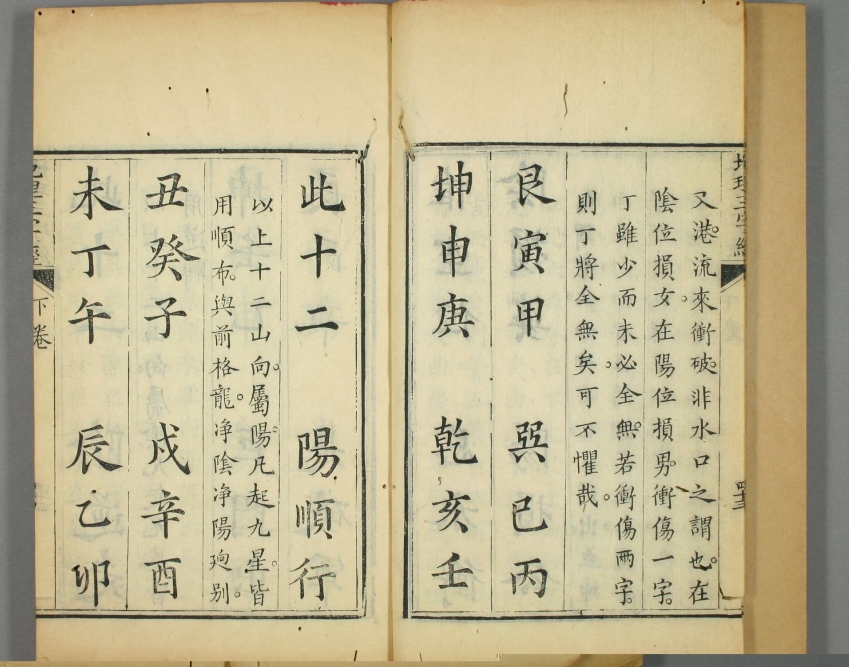 地理三字經
四十三
又港流來衝破。非水口之謂也。在
陰位損女。在陽位損男。衝傷一字。
丁雖少而未必全無。若衝傷兩字。
則丁將全無矣。可不懼哉。
艮寅甲　巽巳丙
坤申庚　乾亥壬
此十二　陽順行
以上十二山向。屬陽。凡起九星。皆
用順布。與前格龍。凈陰凈陽逈别。
丑癸子　戌辛酉
未丁午　辰乙卯
下卷